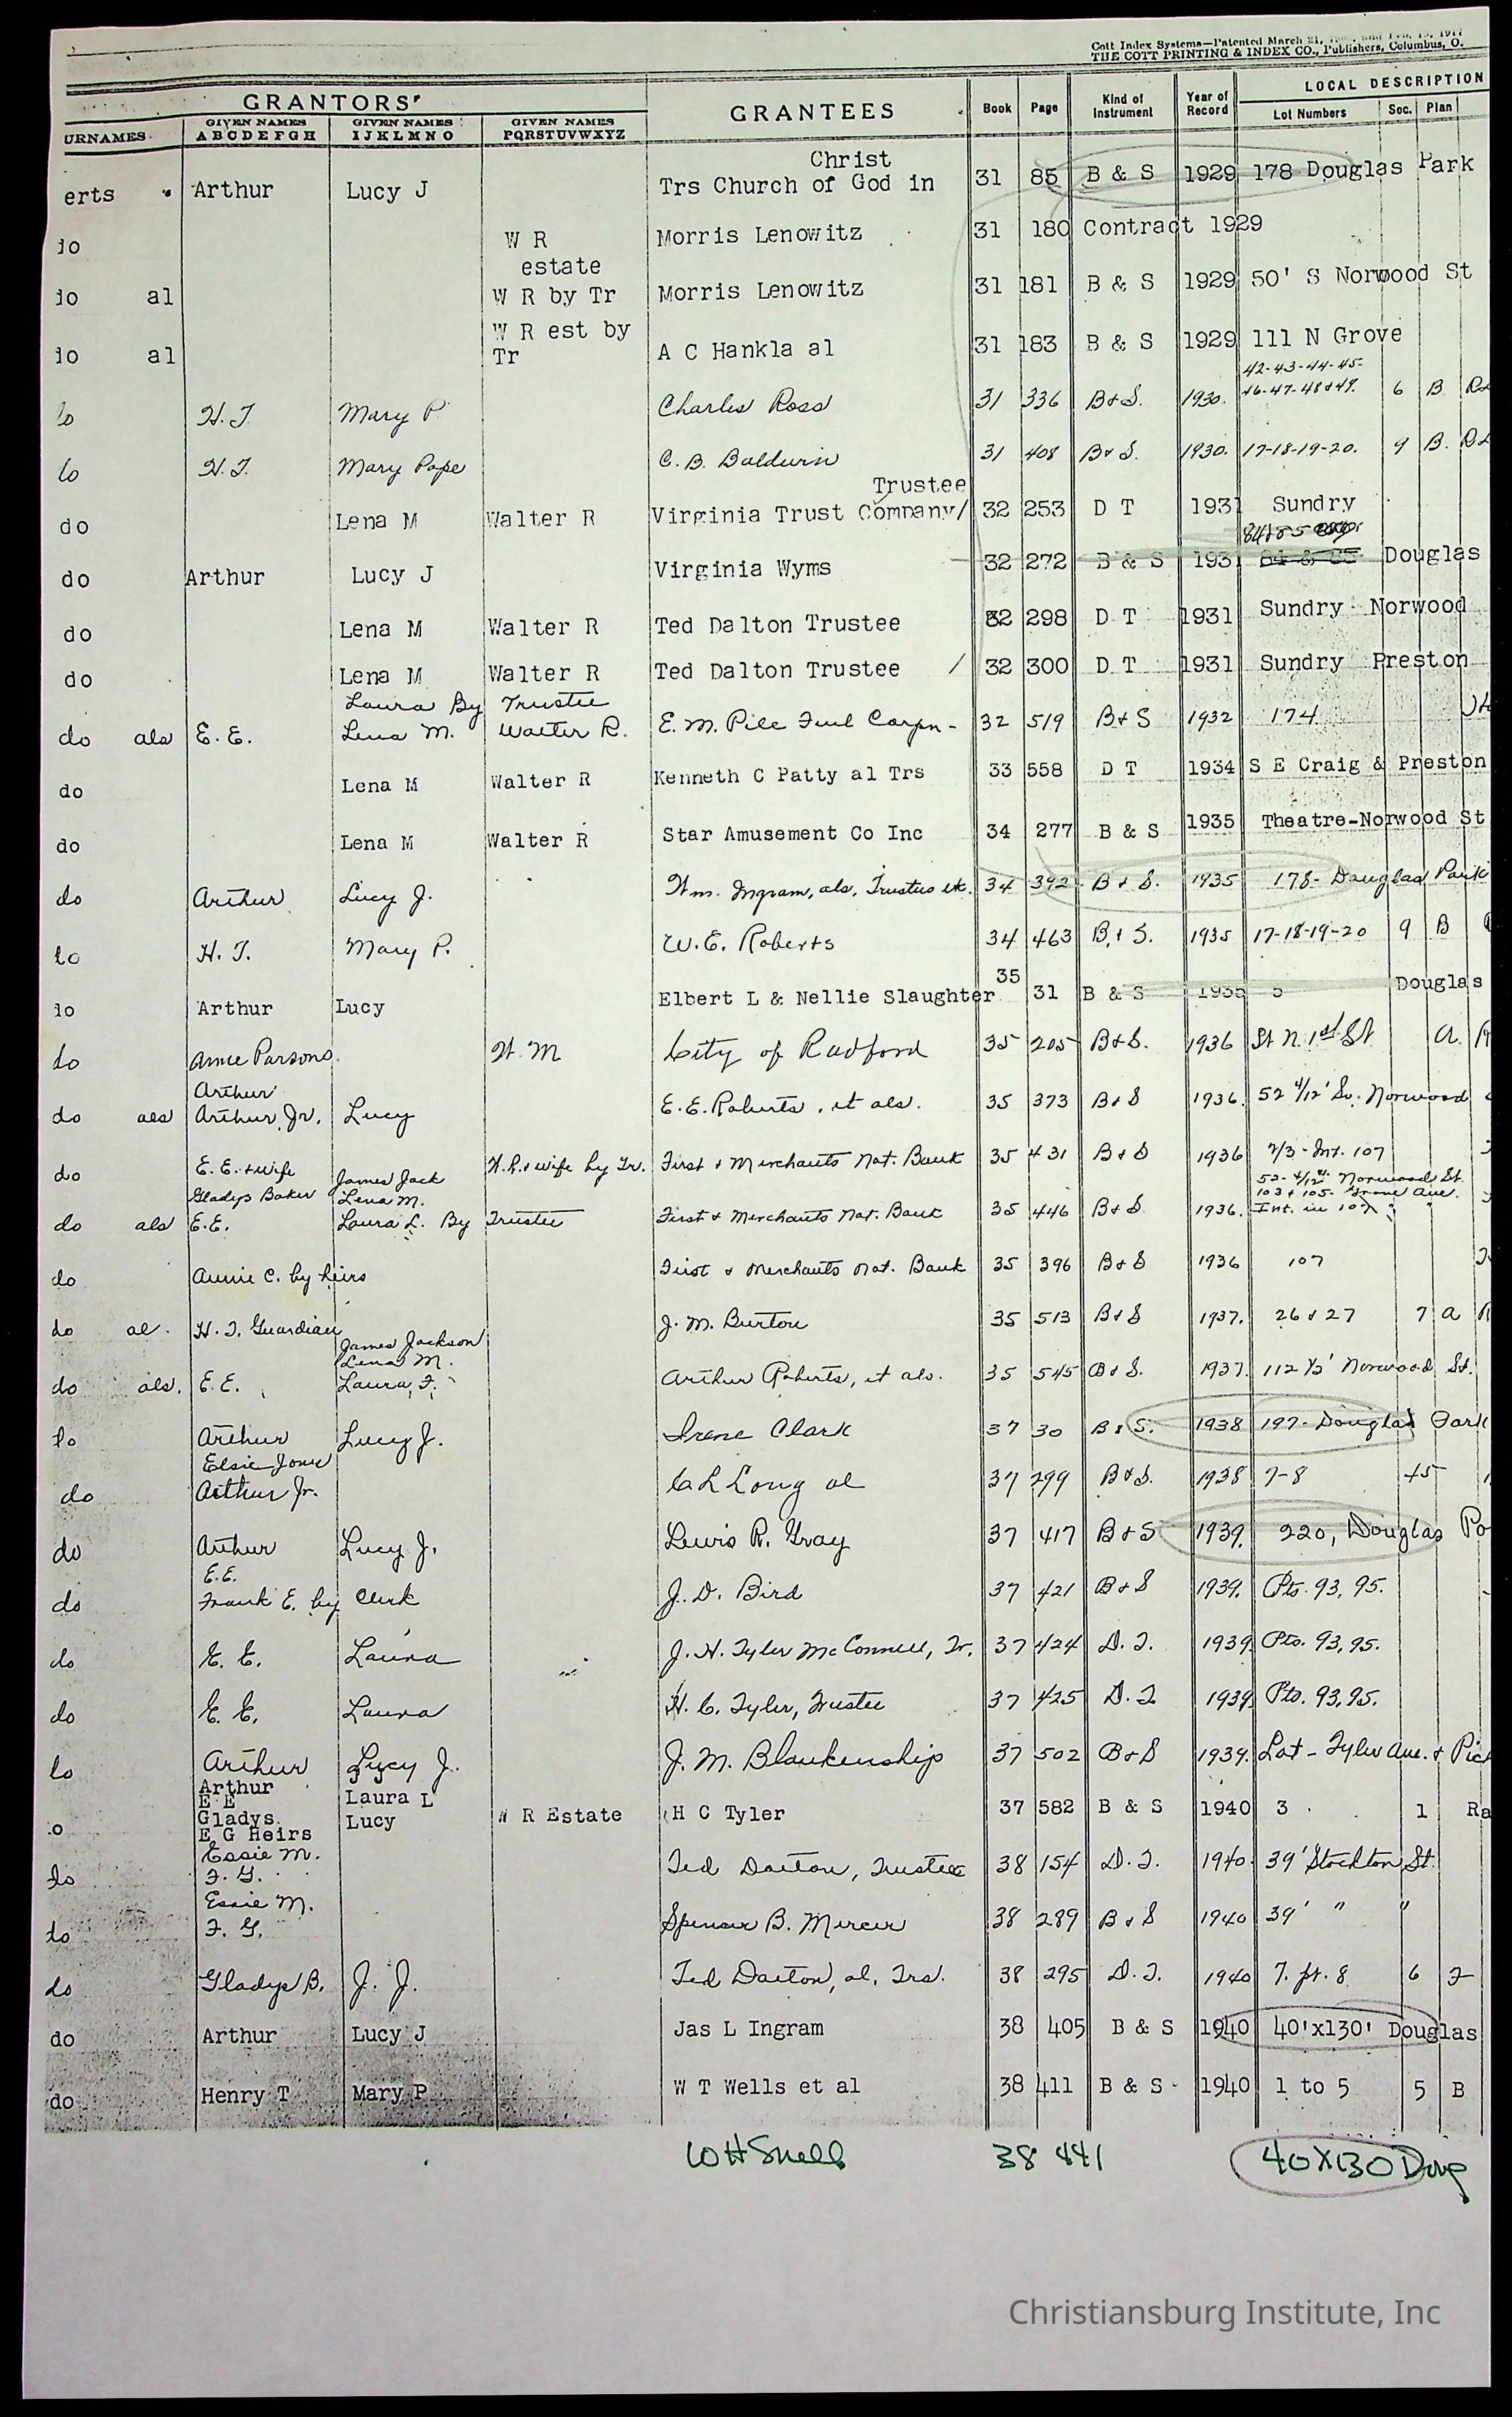 Cott Index Systems—Patented March 21,
THE COTT PRINTING & INDEX CO., Publishers, Columbus, O.
GRANTORS GRANTEES Book Page Kind of Instrument Year of Record LOCAL DESCRIPTION
URNAMES GIVEN NAMES ABCDEFGH GIVEN NAMES IJKLMNO GIVEN NAMES PQRSTUVWXYZ Lot Numbers Sec. Plan
Christ
erts Arthur Lucy J Trs Church of God in 31 85 B & S 1929 178 Douglas Park
do W R Morris Lenowitz 31 180 Contract 1929
estate
do al W R by Tr Morris Lenowitz 31 181 B & S 1929 50' S Norwood St
W R est by
do al Tr A C Hankla al 31 183 B & S 1929 111 N Grove
42-43-44-45-
do H. T. Mary P Charles Ross 31 336 B & S. 1930. 46-47-48 & 49. 6 B
do H. T. Mary Pope C. B. Baldwin 31 408 B & S. 1930. 17-18-19-20. 9 B.
Trustee
do Lena M Walter R Virginia Trust Company/ 32 253 D T 1931 Sundry
84 & 85
do Arthur Lucy J Virginia Wyms 32 272 B & S 1931 84 & 85 Douglas
do Lena M Walter R Ted Dalton Trustee 32 298 D T 1931 Sundry Norwood
do Lena M Walter R Ted Dalton Trustee / 32 300 D T 1931 Sundry Preston
Laura By Trustee
do als E. E. Lena M. Walter R. E. M. Pile Fuel Corpn- 32 519 B & S 1932 174
do Lena M Walter R Kenneth C Patty al Trs 33 558 D T 1934 S E Craig & Preston
do Lena M Walter R Star Amusement Co Inc 34 277 B & S 1935 Theatre-Norwood St
do Arthur Lucy J. Wm. Ingram, als, Trustees etc. 34 392 B & S. 1935 178- Douglas Park
do H. T. Mary P. W. E. Roberts 34 463 B. & S. 1935 17-18-19-20 9 B
35
do Arthur Lucy Elbert L & Nellie Slaughter 31 B & S 1935 5 Douglas
do Annie Parsons W. M City of Radford 35 205 B & S. 1936 St N. 1st St A.
Arthur
do als Arthur Jr. Lucy E. E. Roberts, et als. 35 373 B & S 1936. 52 4/12' So. Norwood
do E. E. & wife James Jack W. R. & wife by Tr. First & Merchants Nat. Bank 35 431 B & S 1936 2/3 - Int. 107
Gladys Baker Lena M. 52-4/12" Norwood St.
103 & 105- Grove Ave.
do als E. E. Laura L. By Trustee First & Merchants Nat. Bank 35 446 B & S 1936. Int. in 107 " "
do Annie C. by heirs First & Merchants Nat. Bank 35 396 B & S 1936 107
do al. H. T. Guardian J. M. Burton 35 513 B & S 1937. 26 & 27 7 A
James Jackson
Lena M.
do als. E. E. Laura F. Arthur Roberts, et als. 35 545 B & S. 1937. 112 1/2' Norwood St.
do Arthur Lucy J. Irene Clark 37 30 B & S. 1938 197- Douglas Park
Elsie Jones
do Arthur Jr. C L Long al 37 299 B & S. 1938 7-8 45
do Arthur Lucy J. Lewis R. Gray 37 417 B & S 1939. 220, Douglas Pa
E.E.
do Frank E. by Clerk J. D. Bird 37 421 B & S 1939. Pts. 93, 95.
do E. E. Laura J. H. Tyler McConnell, Tr. 37 424 D. T. 1939. Pts. 93, 95.
do E. E. Laura H. C. Tyler, Trustee 37 425 D. T. 1939. Pts. 93, 95.
do Arthur Lucy J. J. M. Blankenship 37 502 B & S 1939. Lot - Tyler Ave. &
Arthur
E E Laura L
Gladys Lucy W R Estate H C Tyler 37 582 B & S 1940 3 1 Ra
E G Heirs
Essie M.
do F. G. Ted Dalton, Trustee 38 154 D. T. 1940. 39' Stockton St.
Essie M.
do F. G. Spencer B. Mercer 38 289 B & S 1940 39' " "
do Gladys B. J. J. Ted Dalton, al, Trs. 38 295 D. T. 1940 7. pt. 8 6 2
do Arthur Lucy J Jas L Ingram 38 405 B & S 1940 40'x130' Douglas
do Henry T Mary P W T Wells et al 38 411 B & S 1940 1 to 5 5 B
W H Snell 38 441 40X130 Doug
Christiansburg Institute, Inc